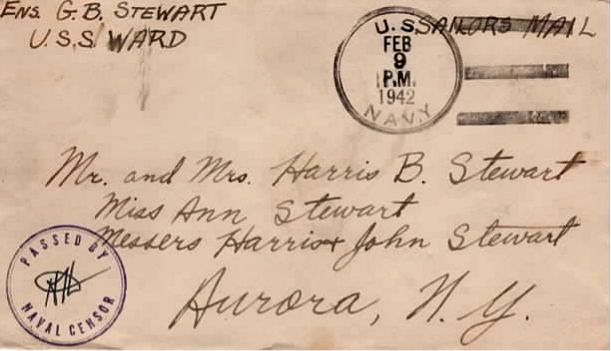 ENS. G. B. STEWART
U.S.S. WARD
SAILORS MAIL
U. S.
FEB
9
P.M.
1942
NAVY
Mr. and Mrs. Harris B. Stewart
Miss Ann Stewart
Messers Harris + John Stewart
Aurora, N. Y.
PASSED BY
NAVAL CENSOR